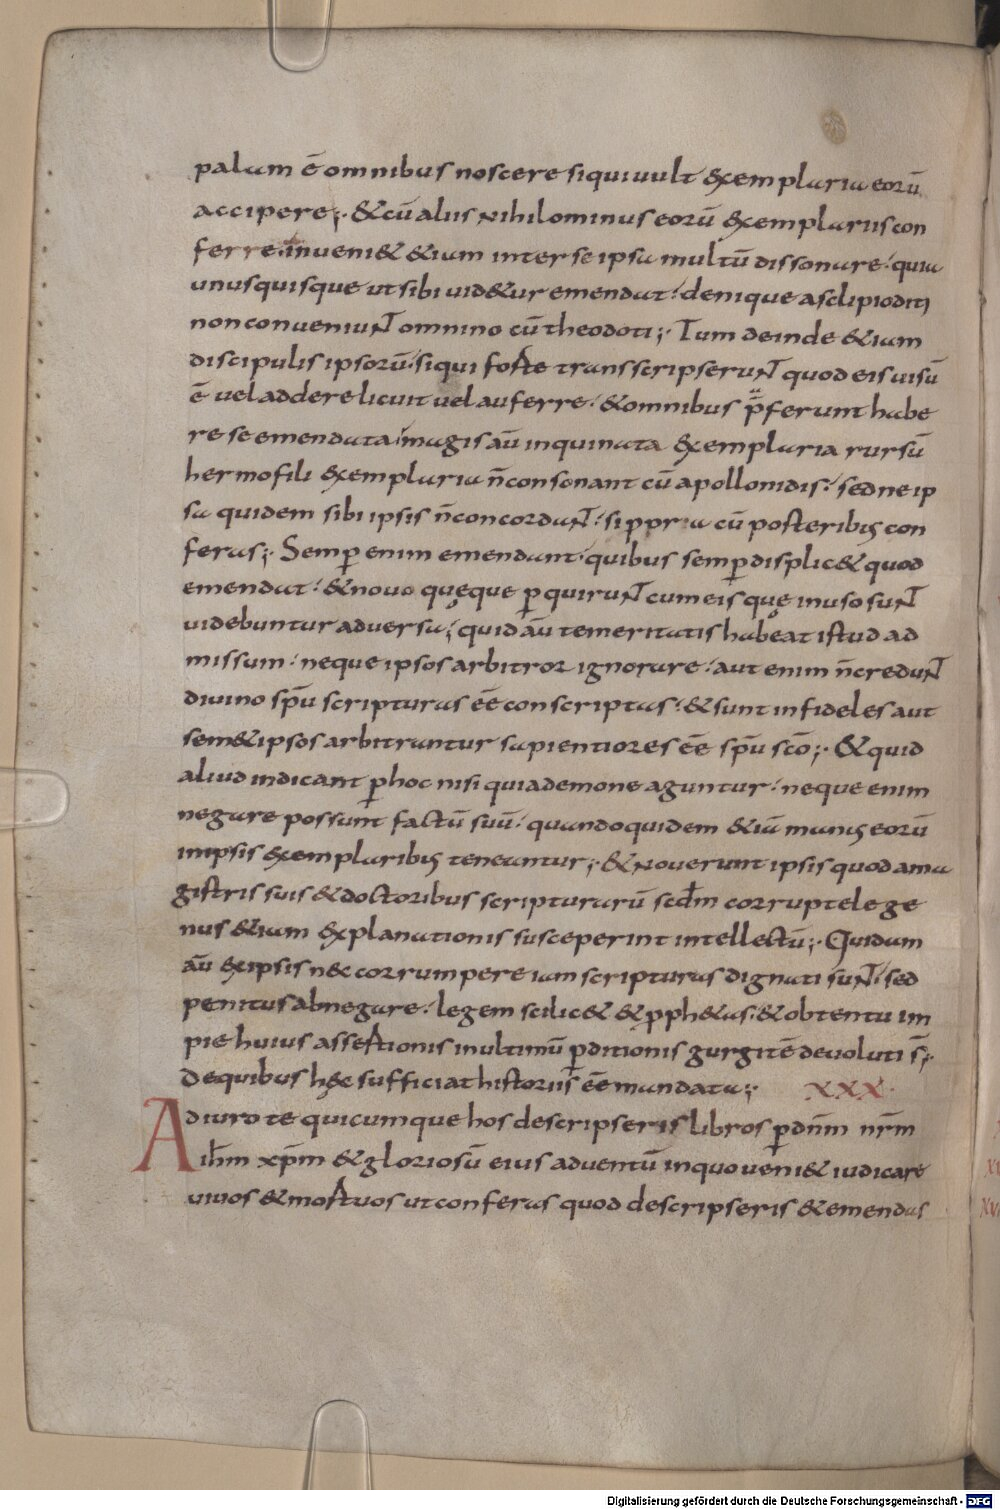 palam ē omnibus noscere si qui uult & exemplaria eorū
accipere;· & cū aliis nihilominus eorū exemplariis con
ferre· inueni& &iam inter se ipsa multū dissonare· quia
unusquisque ut sibi uid&ur emendat· denique asclipioditi
non conueniunt omnino cū theodoti;· Tum deinde &iam
discipulis ipsorū· si qui foste transscripserunt quod eis uisū
ē uel addere licuit uel auferre· & omnibus p̄ferunt habe
re se emendata· magis aū inquinata exemplaria rursū
hermofili exemplaria n̄ consonant cū apollonidis· sed ne ip
sa quidem sibi ipsis n̄ concordant· si ppria cū posteribus con
feras;· Semp enim emendant· quibus semp displic& quod
emendat· & noua quęque p quirunt cum eis quę in uso sunt
uidebuntur aduersa· quid aū temeritatis habeat istud ad
missum· neque ipsos arbitror ignorare· aut enim n̄ credunt
diuino spū scripturas ēē conscriptas· & sunt infideles aut
sem& ipsos arbitrantur sapientiores ēē spū scō;· & quid
aliud indicant p hoc nisi quia demone aguntur· neque enim
negare possunt factū suū· quandoquidem &iā manus eorū
in ipsis exemplaribus teneantur;· & nouerunt ipsis quod a ma
gistris suis & doctoribus scripturarū scdm corruptele ge
nus &iam explanationis susceperint intellectū;· Quidam
aū ex ipsis nec corrumpere iam scripturas dignati sunt· sed
penitus abnegare· legem scilic& & pph&as· & obtentu im
pie huius assestionis in ultimū pditionis gurgitē deuoluti s̄;·
De quibus hęc sufficiat historiis ēē mandata;· XXX·
Adiuro te quicumque hos descripseris libros p dn̄m nr̄m
ih̄m xp̄m & gloriosū eius aduentū in quo ueni& iudicare
uiuos & mostuos ut conferas quod descripseris & emendas
Digitalisierung gefördert durch die Deutsche Forschungsgemeinschaft - DFG